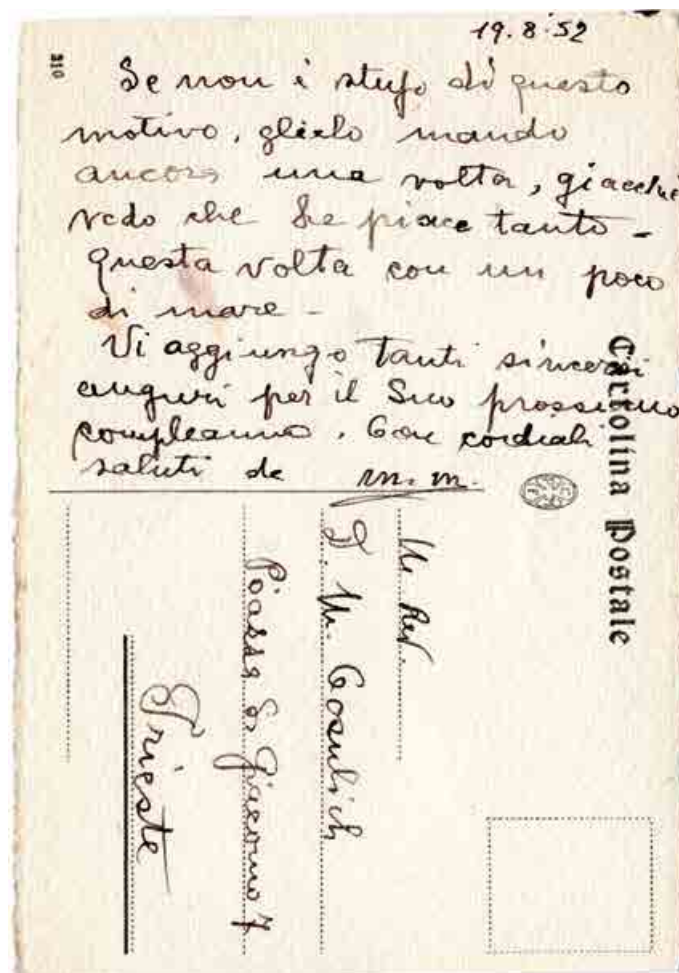 19.8.52
310
Se non è stufo di questo
motivo, glielo mando
ancora una volta, giacché
vedo che Le piace tanto -
Questa volta con un poco
di mare -
Vi aggiungo tanti sinceri
auguri per il Suo prossimo
compleanno. Con cordiali
saluti da m. m.
Cartolina Postale
M. Rev.
D. M. Cosulich
Piazza S. Giacomo 7
Trieste